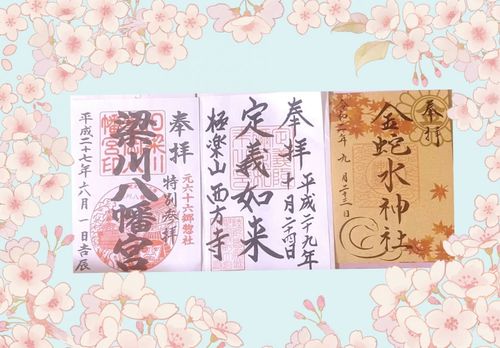 奉拝
特別参拝
元六十六郷惣社
梁川八幡宮
平成二十七年六月一日吉辰
奉拝
平成二十九年
十月二十四日
定義如来
極楽山西方寺
奉拝
金蛇水神社
九月二十三日